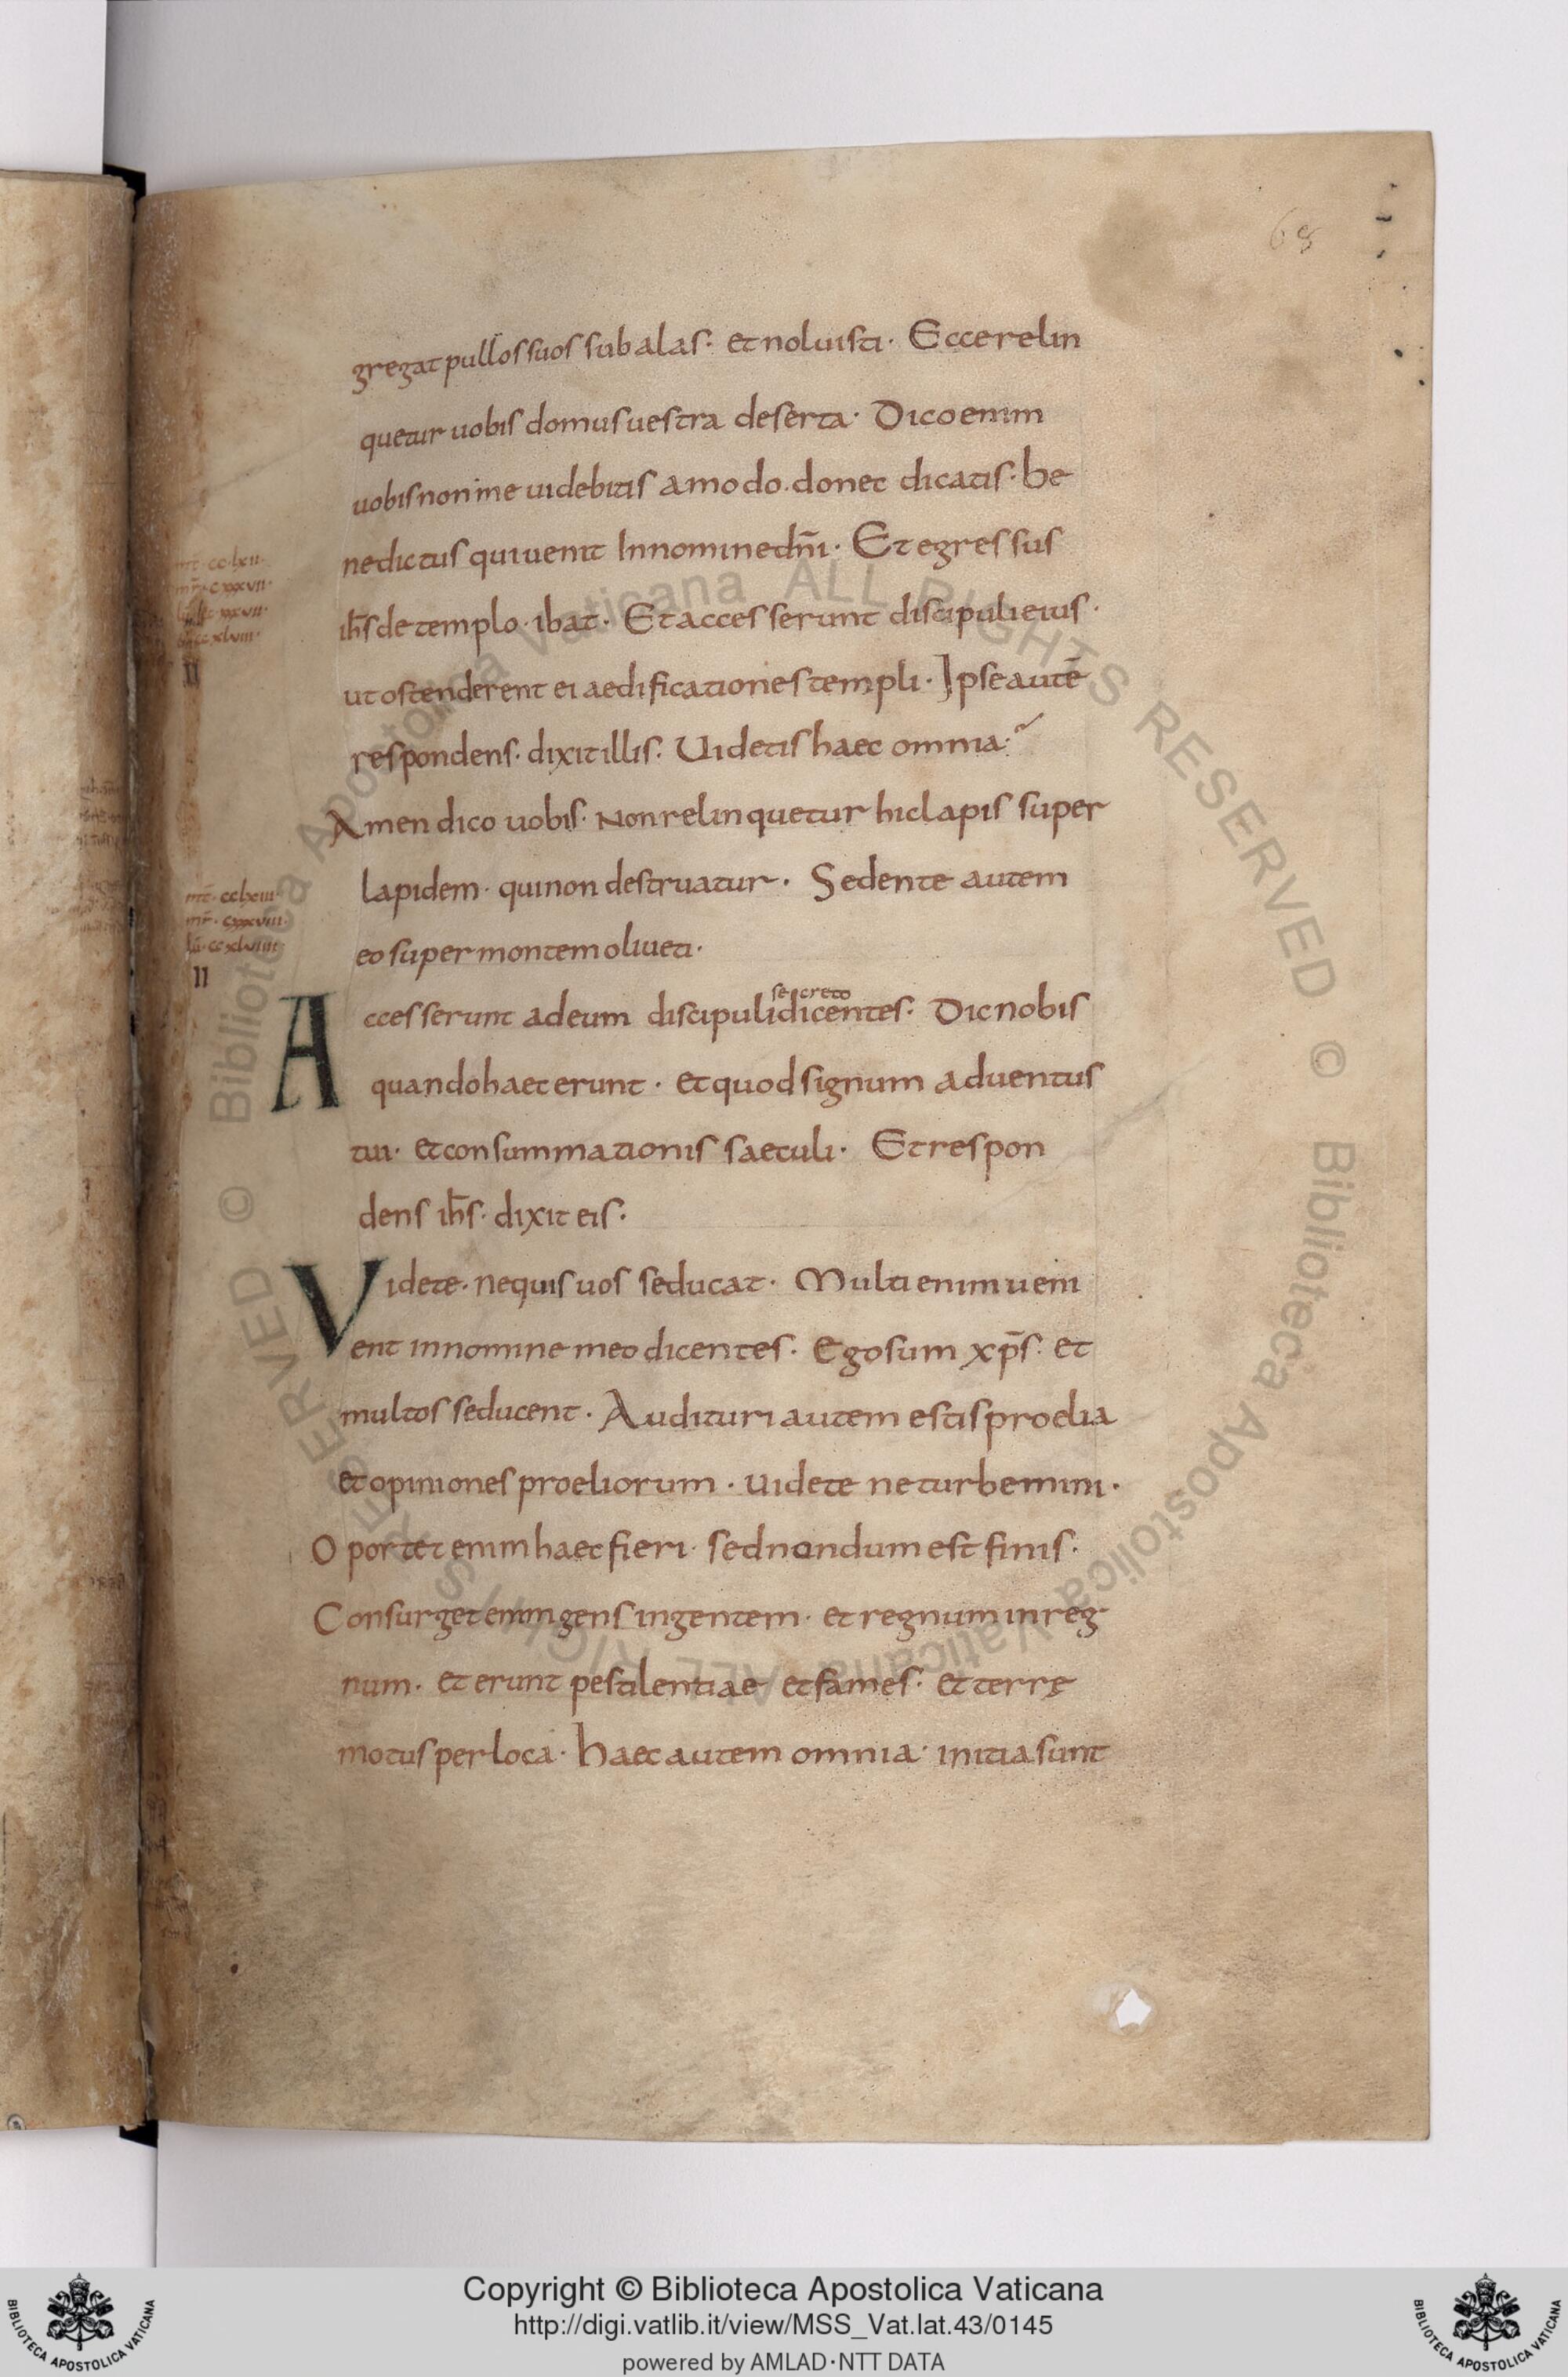 68
gregat pullos suos sub alas· et noluisti· Ecce relin
quetur uobis domus uestra deserta· Dico enim
uobis non me uidebitis amodo· donec dicatis· be
nedictus qui uenit In nomine dn̄i· Et egressus
ih̄s de templo· ibat· Et accesserunt discipuli eius·
ut ostenderent ei aedificationes templi· Ipse autē
respondens· dixit illis· Uidetis haec omnia·
Amen dico uobis· Non relinquetur hic lapis super
lapidem· qui non destruatur· Sedente autem
eo super montem oliueti·
secreto
Accesserunt ad eum discipuli dicentes· Dic nobis
quando haec erunt· et quod signum aduentus
tui· et consummationis saeculi· Et respon
dens ih̄s· dixit eis·
Videte· ne quis uos seducat· Multi enim ueni
ent in nomine meo dicentes· Ego sum xp̄s· et
multos seducent· Audituri autem estis proelia
et opiniones proeliorum· uidete ne turbemini·
Oportet enim haec fieri· sed nondum est finis·
Consurget enim gens in gentem· et regnum in reg
num· et erunt pestilentiae et fames· et terrę
motus per loca· haec autem omnia· initia sunt
mr̄· cxxxvii·
II
mt̄· cclxiii·
mr̄· cxxxviii·
lū· ccxlviiii·
II
© Biblioteca Apostolica Vaticana ALL RIGHTS RESERVED © Biblioteca Apostolica Vaticana ALL RIGHTS RESERVED
Copyright © Biblioteca Apostolica Vaticana
http://digi.vatlib.it/view/MSS_Vat.lat.43/0145
powered by AMLAD·NTT DATA
BIBLIOTECA APOSTOLICA VATICANA
BIBLIOTECA APOSTOLICA VATICANA